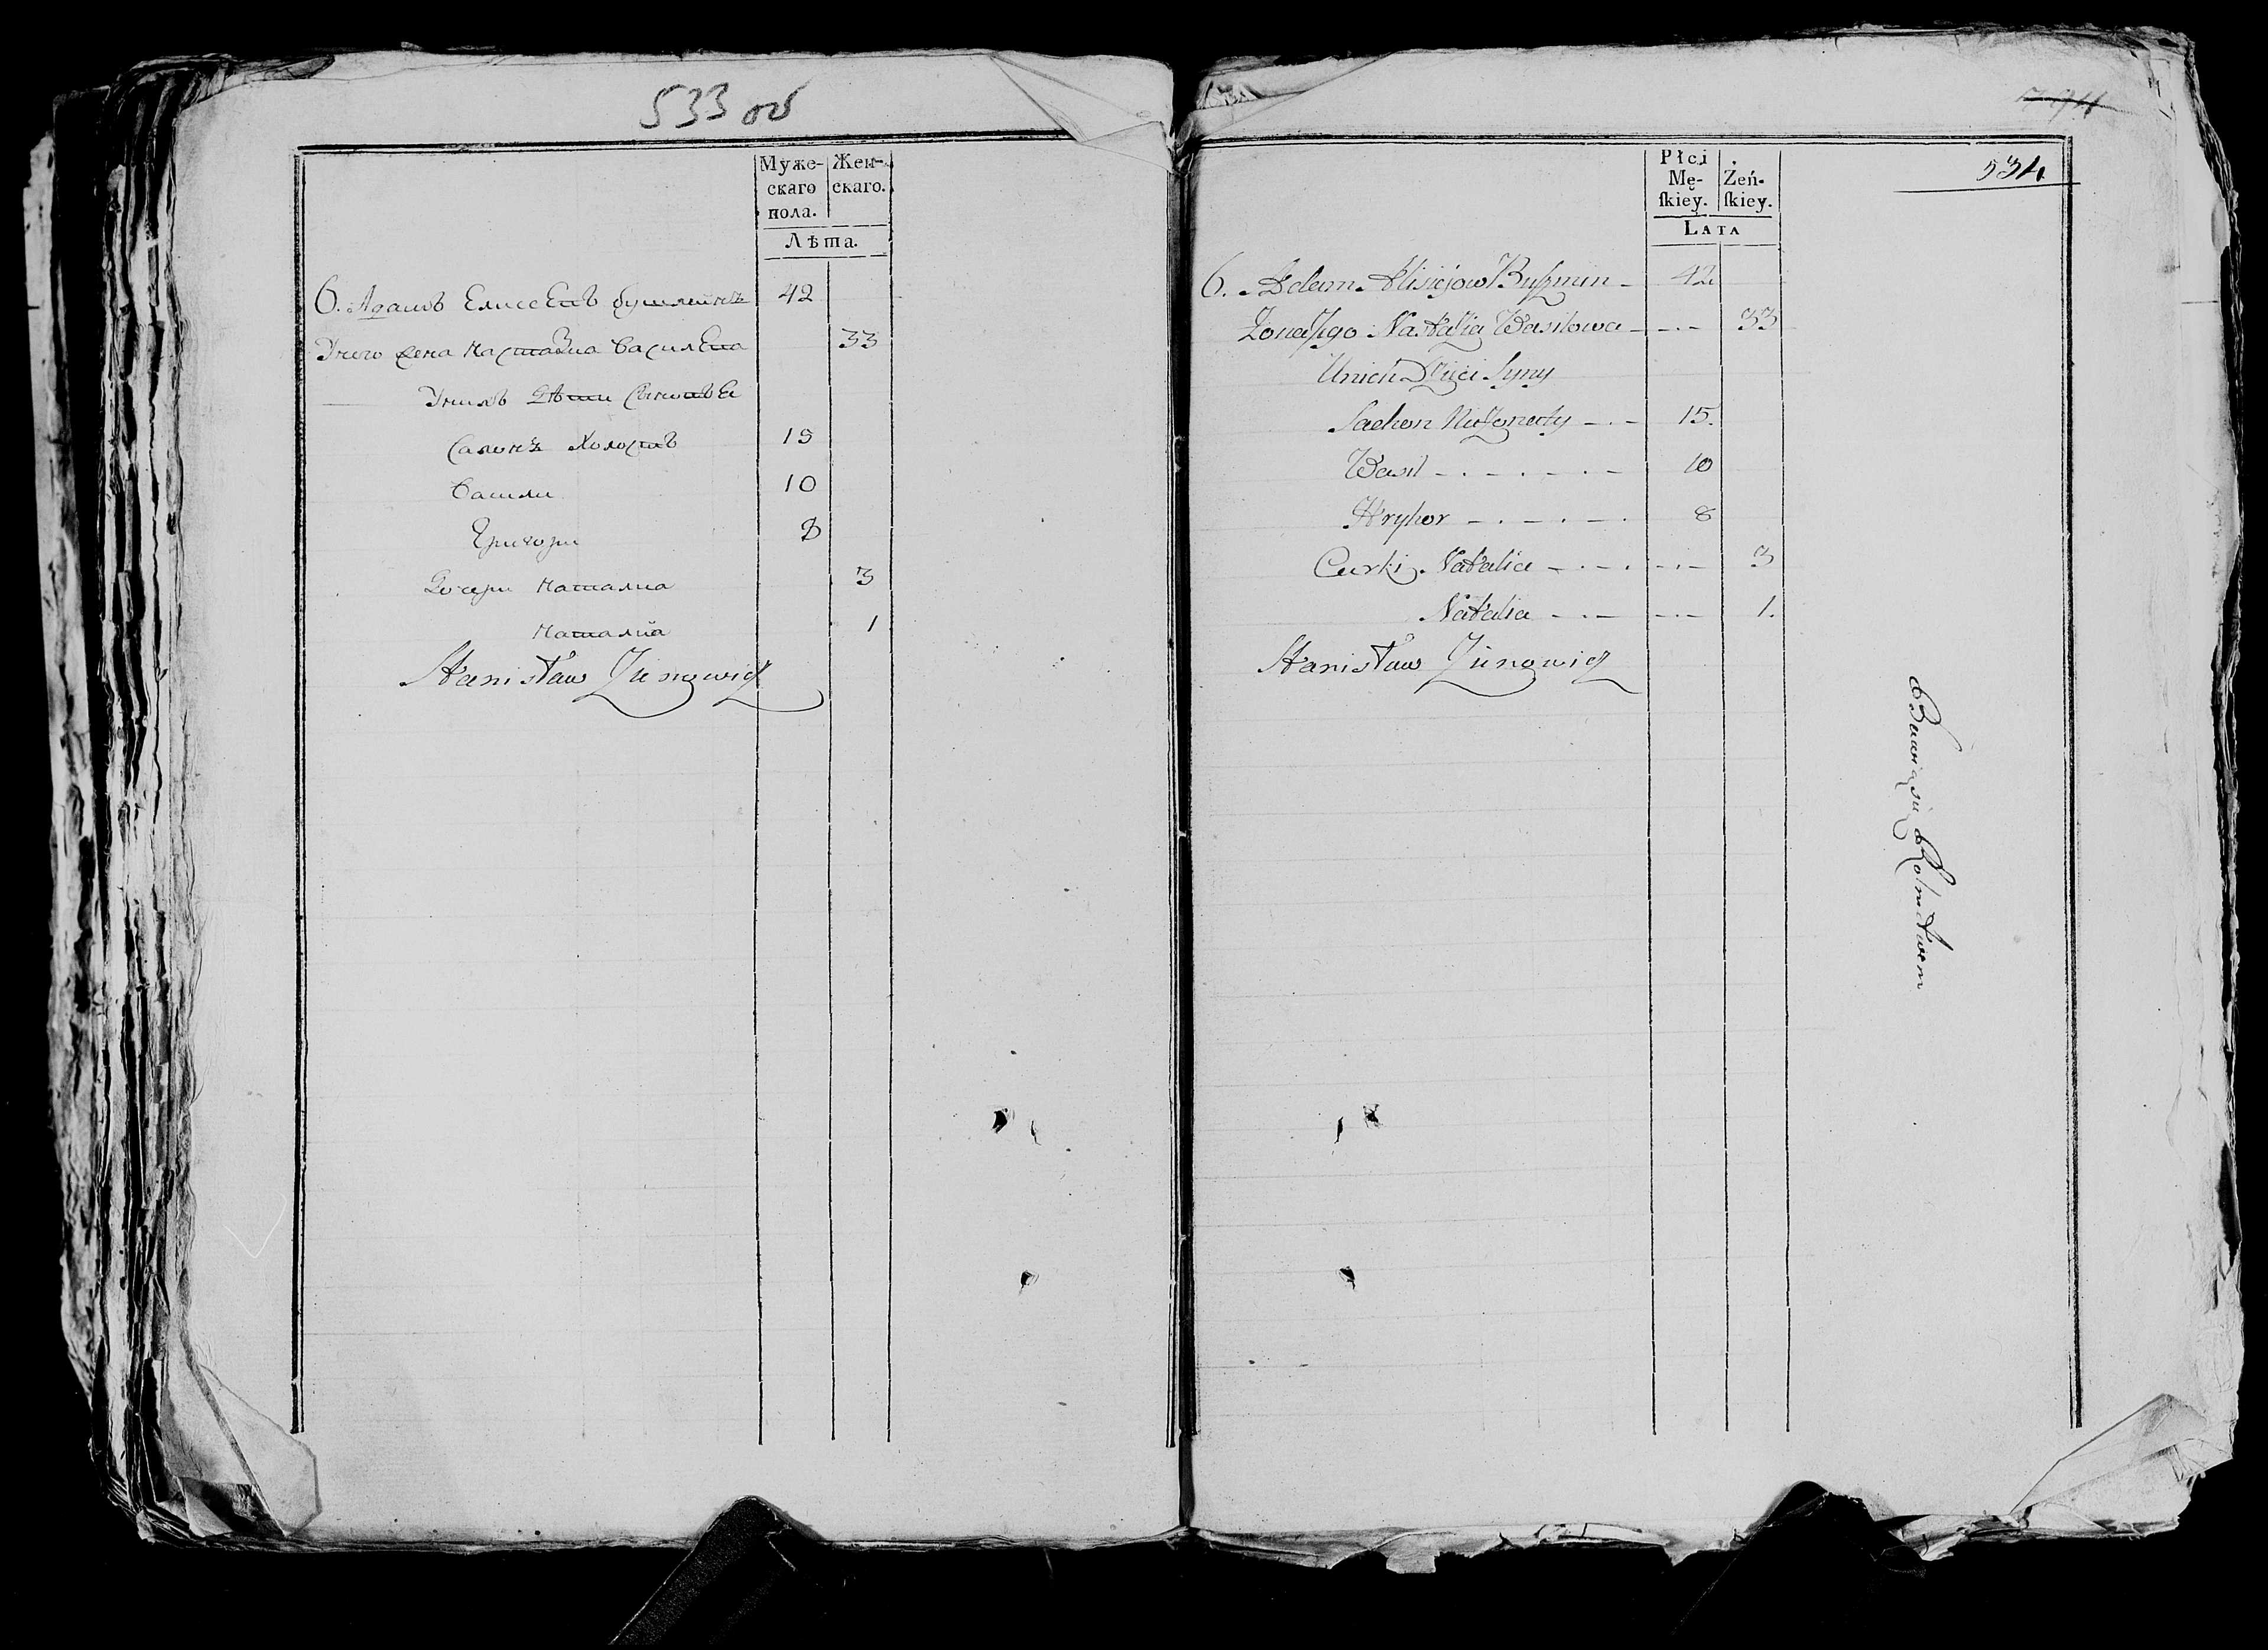 533 об
Муже- Жен-
скаго скаго.
пола.
Лѣта.
6. Адамъ Елисеевъ 42
У него жена Настазиа Василева 33
У нихъ Дѣти Сыновъе
Самонъ Холостъ 15
Васили 10
Григори 8
Дочери Наталиа 3
Наталиа 1
Stanisław Zungwicz
534
Płci
Mę- Żeń-
ſkiey. ſkiey.
LATA
6. Adam Alisiejow Buszmin 42
Zona Jego Nastazia Wasilowa 33
U nich Dzieci Syny
Samon Nieżonaty 15.
Wasil 10
Hryhor 8
Curki Natalia 3
Natalia 1.
Stanisław Zungwicz